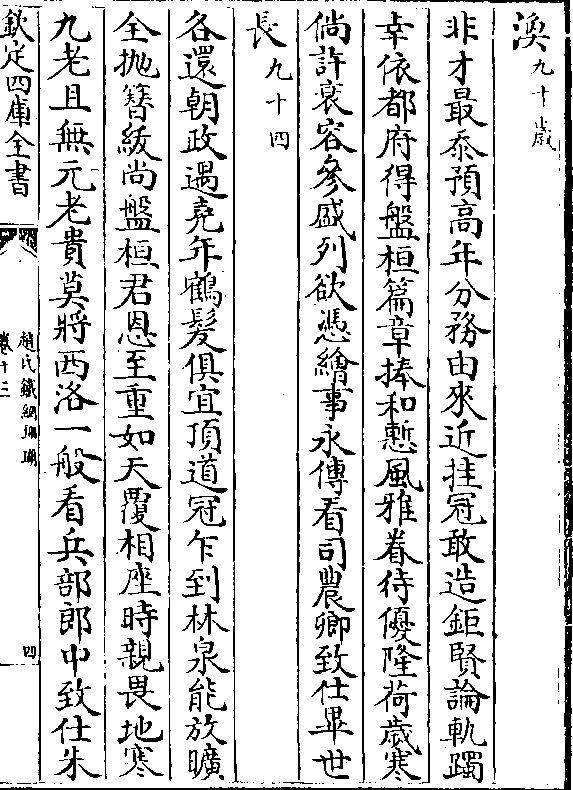 渙九十歲
非才最忝預高年分務由來近挂冠敢造鉅賢論軌躅
幸依都府得盤桓篇章捧和慙風雅眷待優隆荷歲寒
倘許衰容參盛列欲憑繪事永傳看司農卿致仕畢世
長九十四
各還朝政遇堯年鶴髮俱宜頂道冠乍到林泉能放曠
全抛簪紱尚盤桓君恩至重如天覆相座時親畏地寒
九老且無元老貴莫將西洛一般看兵部郎中致仕朱
欽定四庫全書
趙氏鐵網珊瑚
卷十三
四